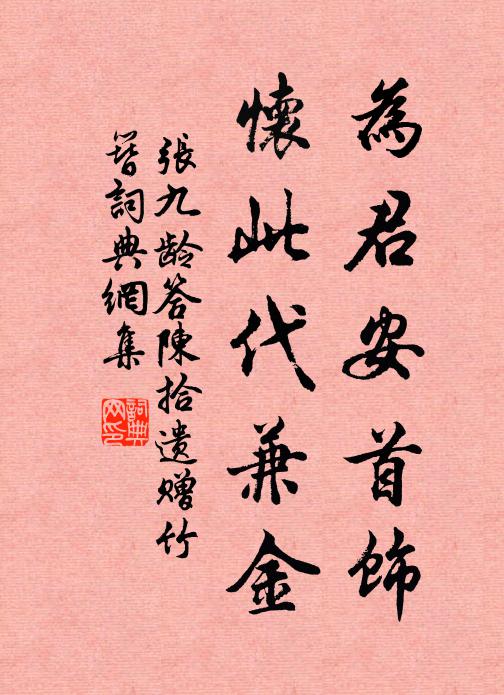 為君安首飾
懷此代兼金
張九龄答陳拾遗贈竹
簪詞典網集
詞典
网印